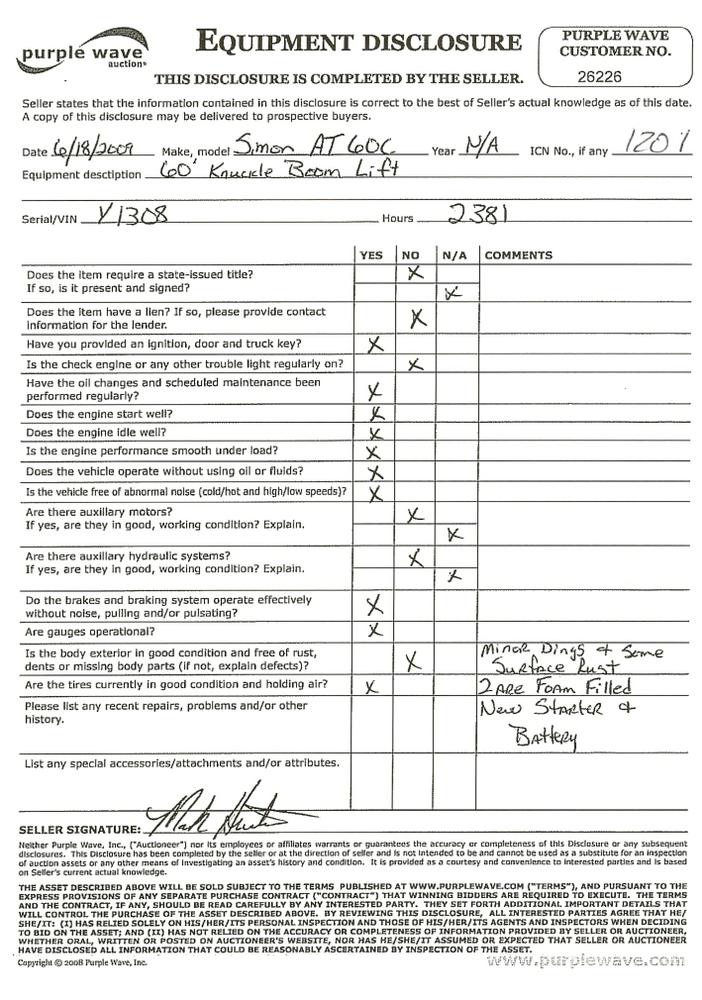 purple wave
auction
EQUIPMENT DISCLOSURE
THIS DISCLOSURE IS COMPLETED BY THE SELLER.
PURPLE WAVE
CUSTOMER NO.
26226
Seller states that the information contained in this disclosure is correct to the best of Seller's actual knowledge as of this date.
A copy of this disclosure may be delivered to prospective buyers.
Date 6/18/2009 Make, model Simon AT 60C Year N/A ICN No., if any 1201
Equipment desctiption 60' Knuckle Boom Lift
Serial/VIN Y1308 Hours 2381
YES NO N/A COMMENTS
Does the item require a state-issued title? X
If so, is it present and signed? X
Does the item have a lien? If so, please provide contact
information for the lender. X
Have you provided an ignition, door and truck key? X
Is the check engine or any other trouble light regularly on? X
Have the oil changes and scheduled maintenance been
performed regularly? X
Does the engine start well? X
Does the engine idle well? X
Is the engine performance smooth under load? X
Does the vehicle operate without using oil or fluids? X
Is the vehicle free of abnormal noise (cold/hot and high/low speeds)? X
Are there auxillary motors? X
If yes, are they in good, working condition? Explain. X
Are there auxillary hydraulic systems? X
If yes, are they in good, working condition? Explain. X
Do the brakes and braking system operate effectively
without noise, pulling and/or pulsating? X
Are gauges operational? X
Is the body exterior in good condition and free of rust, Minor Dings + Some
dents or missing body parts (if not, explain defects)? X Surface Rust
Are the tires currently in good condition and holding air? X 2 are Foam Filled
Please list any recent repairs, problems and/or other New Starter +
history. Battery
List any special accessories/attachments and/or attributes.
SELLER SIGNATURE:
Neither Purple Wave, Inc., ("Auctioneer") nor its employees or affiliates warrants or guarantees the accuracy or completeness of this Disclosure or any subsequent
disclosures. This Disclosure has been completed by the seller or at the direction of seller and is not intended to be and cannot be used as a substitute for an inspection
of auction assets or any other means of investigating an asset's history and condition. It is provided as a courtesy and convenience to interested parties and is based
on Seller's current actual knowledge.
THE ASSET DESCRIBED ABOVE WILL BE SOLD SUBJECT TO THE TERMS PUBLISHED AT WWW.PURPLEWAVE.COM ("TERMS"), AND PURSUANT TO THE
EXPRESS PROVISIONS OF ANY SEPARATE PURCHASE CONTRACT ("CONTRACT") THAT WINNING BIDDERS ARE REQUIRED TO EXECUTE. THE TERMS
AND THE CONTRACT, IF ANY, SHOULD BE READ CAREFULLY BY ANY INTERESTED PARTY. THEY SET FORTH ADDITIONAL IMPORTANT DETAILS THAT
WILL CONTROL THE PURCHASE OF THE ASSET DESCRIBED ABOVE. BY REVIEWING THIS DISCLOSURE, ALL INTERESTED PARTIES AGREE THAT HE/
SHE/IT: (I) HAS RELIED SOLELY ON HIS/HER/ITS PERSONAL INSPECTION AND THOSE OF HIS/HER/ITS AGENTS AND INSPECTORS WHEN DECIDING
TO BID ON THE ASSET; AND (II) HAS NOT RELIED ON THE ACCURACY OR COMPLETENESS OF INFORMATION PROVIDED BY SELLER OR AUCTIONEER,
WHETHER ORAL, WRITTEN OR POSTED ON AUCTIONEER'S WEBSITE, NOR HAS HE/SHE/IT ASSUMED OR EXPECTED THAT SELLER OR AUCTIONEER
HAVE DISCLOSED ALL INFORMATION THAT COULD BE REASONABLY ASCERTAINED BY INSPECTION OF THE ASSET.
Copyright © 2008 Purple Wave, Inc. www.purplewave.com